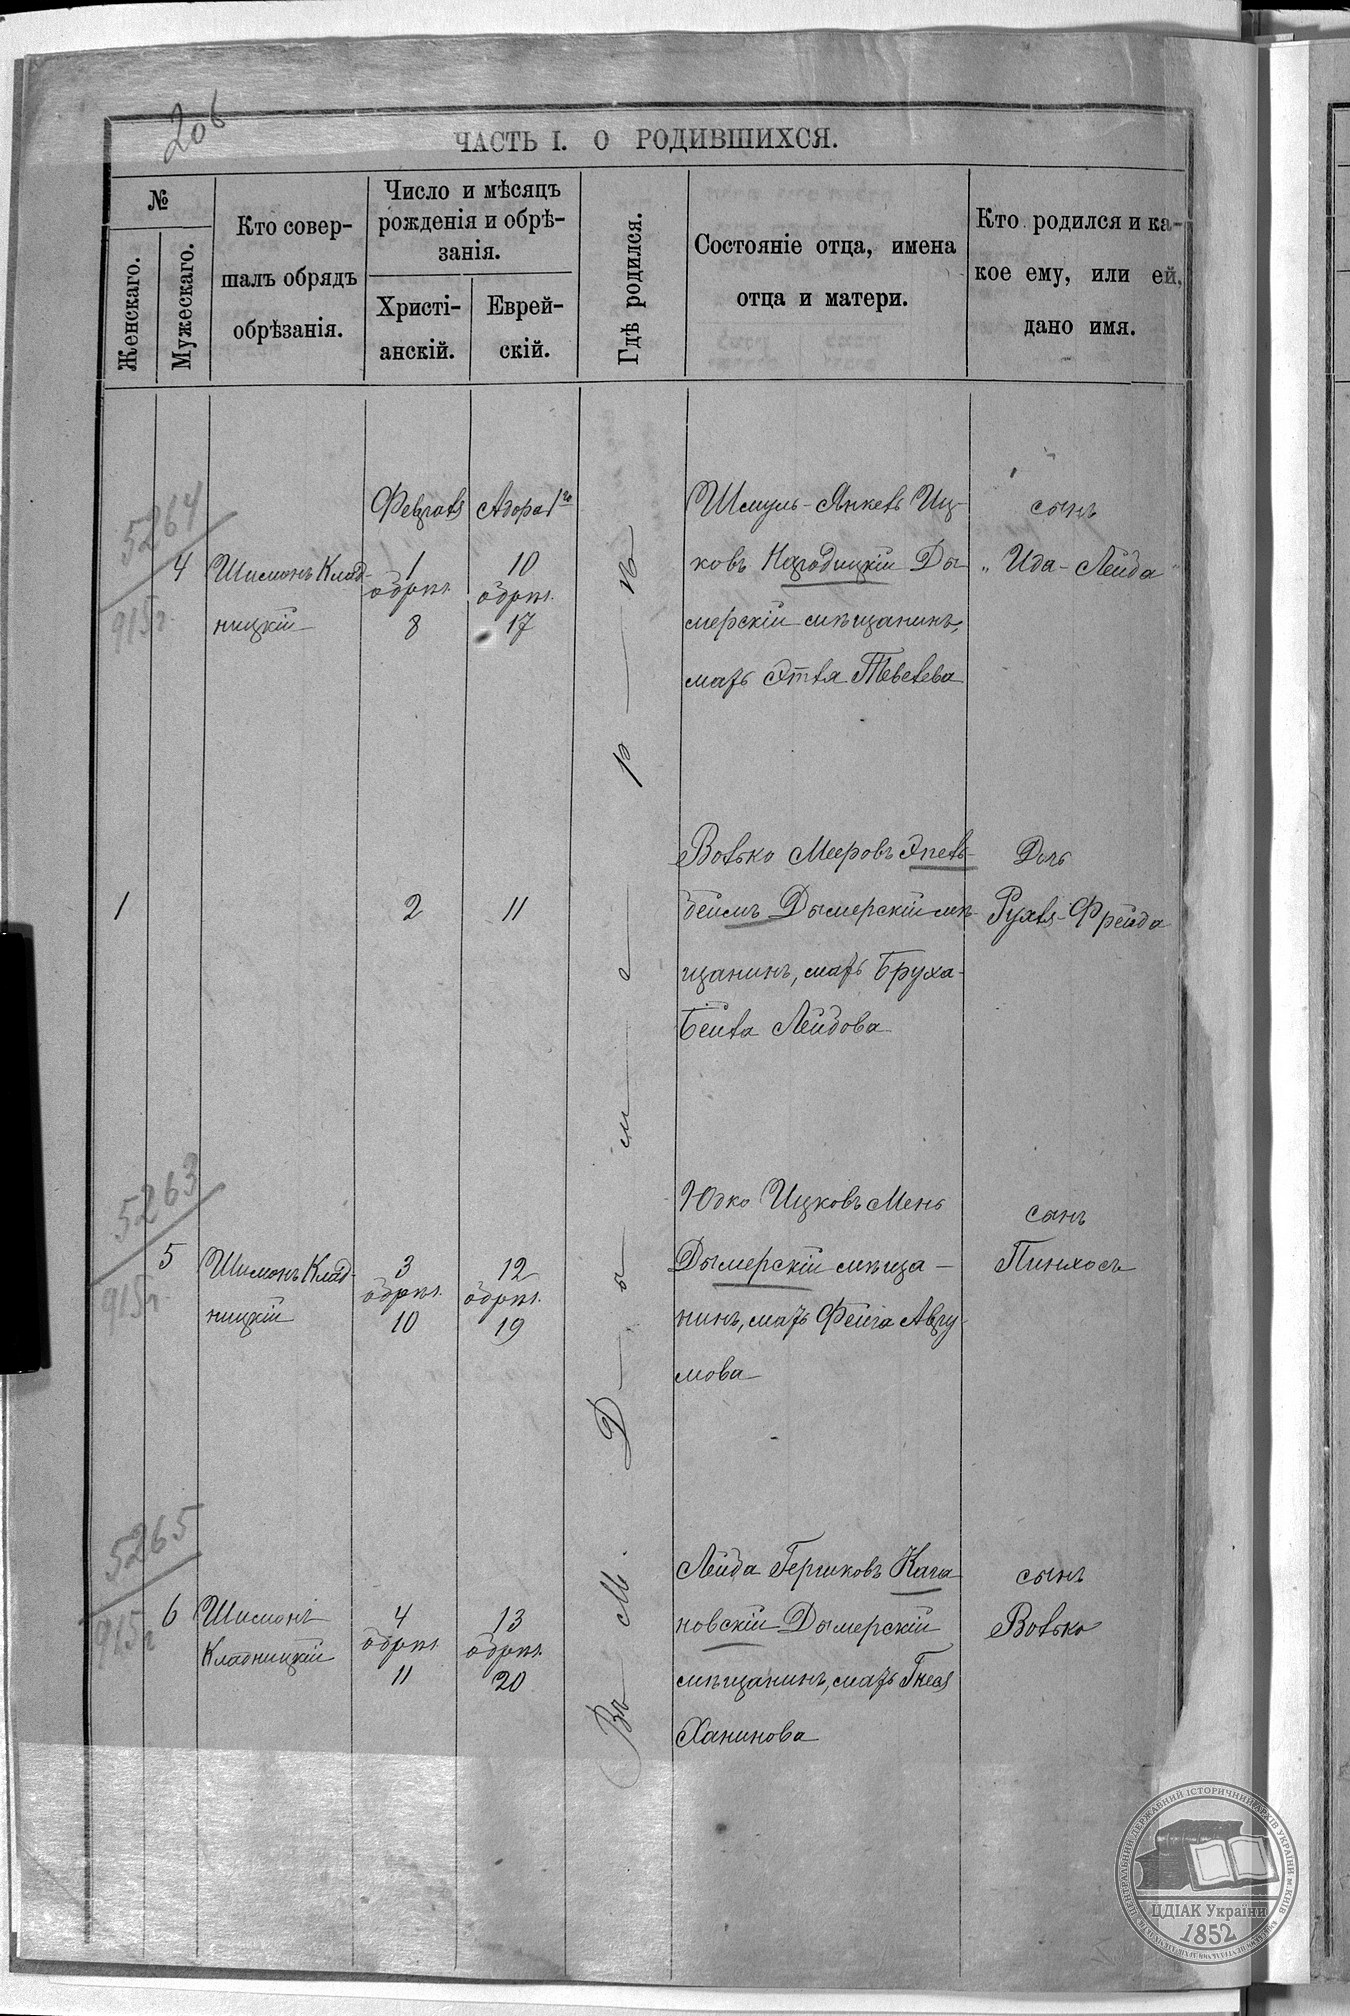 206
ЧАСТЬ I. О РОДИВШИХСЯ.
№
Женскаго.
Мужескаго.
Кто совер-
шалъ обрядъ
обрѣзанія.
Число и мѣсяцъ
рожденія и обрѣ-
занія.
Христі-
анскій.
Еврей-
скій.
Гдѣ родился.
Состояніе отца, имена
отца и матери.
Кто родился и ка-
кое ему, или ей,
дано имя.
Въ М. Дымерѣ
5264
915 г.
4
Шимонъ Клад-
ницкій
Февраля
1
обрѣз.
8
Адора 1го
10
обрѣз.
17
Шмуль-Янкель Иц-
ковъ Народицкій Ды-
мерскій мѣщанинъ,
мать Этля Тевелева
сынъ
Ида-Лейба
1
2
11
Волько Мееровъ Эпель-
беимъ Дымерскій мѣ-
щанинъ, мать Бруха-
Бейла Лейбова
Дочь
Рухля-Фрейда
5263
915 г.
5
Шимонъ Клад-
ницкій
3
обрѣз.
10
12
обрѣз.
19
Юдко Ицковъ Мень
Дымерскій мѣща-
нинъ, мать Фейга Авру-
мова
сынъ
Пинхосъ
5265
915 г
6
Шимонъ
Кладницкій
4
обрѣз.
11
13
обрѣз.
20
Лейба Гершковъ Кага
новскій Дымерскій
мѣщанинъ, мать Гнеся
Ханинова
сынъ
Волько
ЦЕНТРАЛЬНИЙ ДЕРЖАВНИЙ ІСТОРИЧНИЙ АРХІВ УКРАЇНИ м. КИЇВ
ЦДІАК України
1852